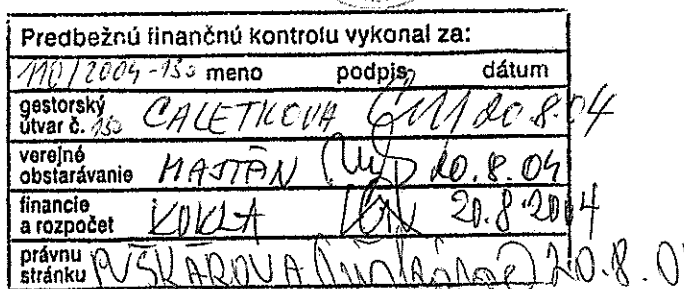 Predbežnú finančnú kontrolu vykonal za:
110/2004-150 meno podpis dátum
gestorský
útvar č. 150 CALETKOVA 20.8.04
verejné
obstarávanie MAJTÁN 20.8.04
financie
a rozpočet KOKLA 20.8.2004
právnu
stránku PUŠKÁROVA 20.8.0